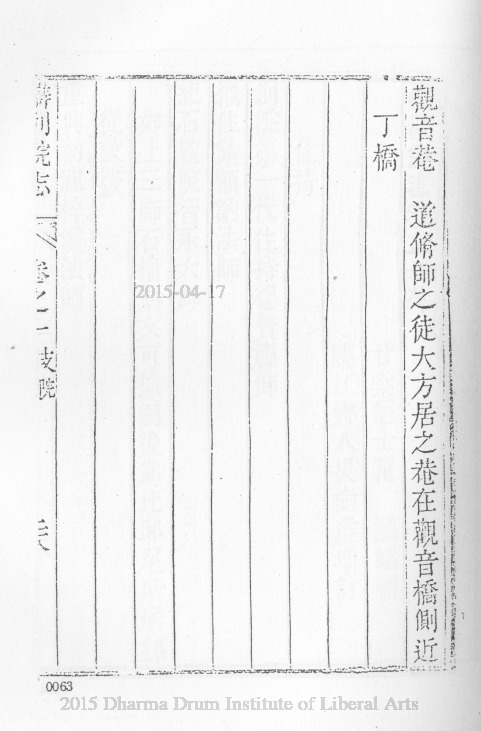 觀音菴 道脩師之徒大方居之菴在觀音橋側近
丁橋
講列院志 卷之二 歧院
2015-04-17
0063
2015 Dharma Drum Institute of Liberal Arts